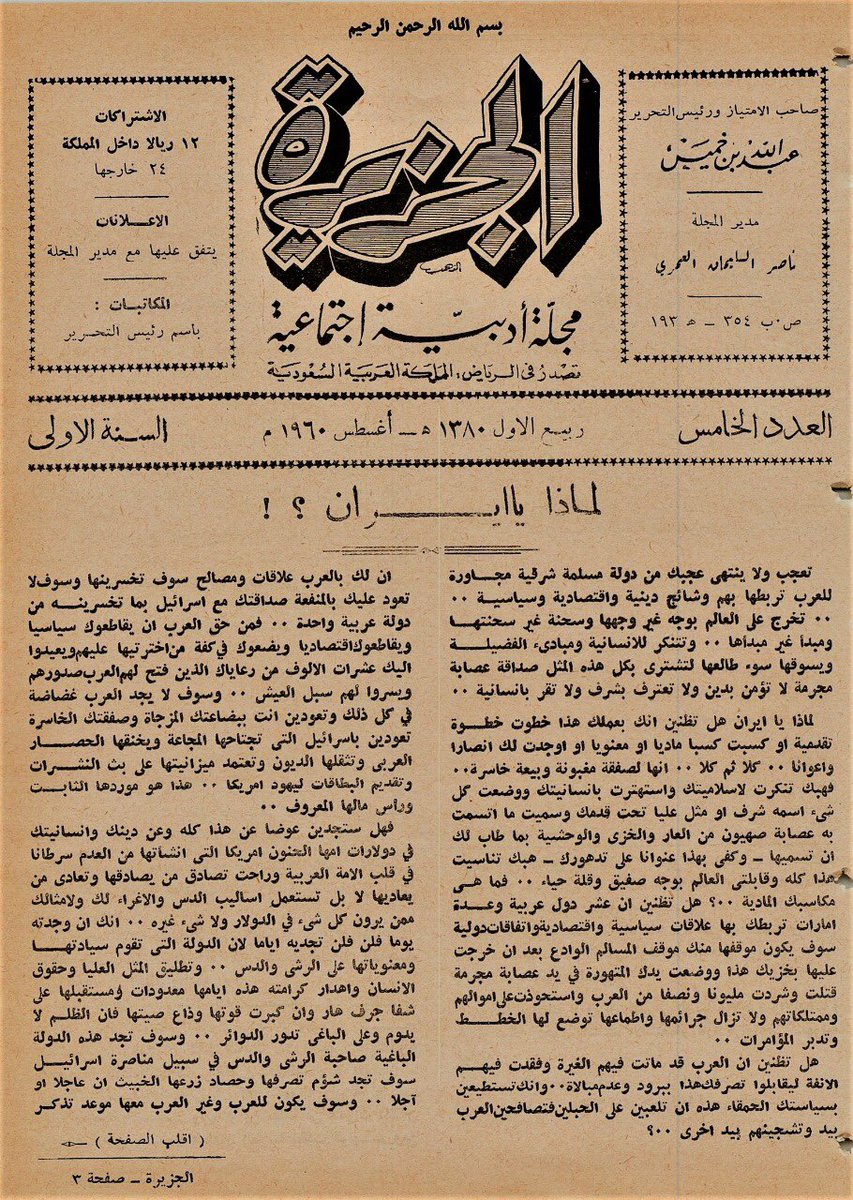 بسم الله الرحمن الرحيم
صاحب الامتياز ورئيس التحرير
عبدالله بن خميس
مدير المجلة
ناصر السليمان العمري
ص٠ب ٣٥٤ ــ ه ١٩٣
الجزيرة
مجلة أدبية إجتماعية
تصدر في الرياض : المملكة العربية السعودية
الاشتراكات
١٢ ريالا داخل المملكة
٢٤ خارجها
الاعــلانات
يتفق عليها مع مدير المجلة
المكاتبات :
باسم رئيس التحرير
العدد الخامس
ربيع الاول ١٣٨٠ هـ ــ أغسطس ١٩٦٠ م
السنة الاولى
لماذا ياايران ؟ !
تعجب ولا ينتهى عجبك من دولة مسلمة شرقية مجاورة
للعرب تربطها بهم وشائج دينية واقتصادية وسياسية ٠٠
٠٠ تخرج على العالم بوجه غير وجهها وسحنة غير سحنتها
ومبدأ غير مبدأها ٠٠ وتتنكر للانسانية ومبادىء الفضيلة
ويسوقها سوء طالعها لتشترى بكل هذه المثل صداقة عصابة
مجرمة لا تؤمن بدين ولا تعترف بشرف ولا تقر بانسانية ٠٠
لماذا يا ايران هل تظنين انك بعملك هذا خطوت خطوة
تقدمية او كسبت كسبا ماديا او معنويا او اوجدت لك انصارا
واعوانا ٠٠ كلا ثم كلا ٠٠ انها لصفقة مغبونة وبيعة خاسرة٠٠
فهبك تنكرت لاسلاميتك واستهترت بانسانيتك ووضعت كل
شىء اسمه شرف او مثل عليا تحت قدمك وسميت ما اتسمت
به عصابة صهيون من العار والخزى والوحشية بما طاب لك
ان تسميها ــ وكفى بهذا عنوانا على تدهورك ــ هبك تناسيت
هذا كله وقابلتى العالم بوجه صفيق وقلة حياء ٠٠ فما هى
مكاسبك المادية ٠٠؟ هل تظنين ان عشر دول عربية وعدة
امارات تربطك بها علاقات سياسية واقتصادية واتفاقات دولية
سوف يكون موقفها منك موقف المسالم الوادع بعد ان خرجت
عليها بخزيك هذا ووضعت يدك المتهورة في يد عصابة مجرمة
قتلت وشردت مليونا ونصفا من العرب واستحوذت على اموالهم
وممتلكاتهم ولا تزال جرائمها واطماعها توضع لها الخطط
وتدبر المؤامرات ٠٠
هل تظنين ان العرب قد ماتت فيهم الغيرة وفقدت فيهم
الانفة ليقابلوا تصرفك هذا ببرود وعدم مبالاة٠٠وانك تستطيعين
بسياستك الحمقاء هذه ان تلعبين على الحبلين فتصافحين العرب
بيد وتشجينهم بيد اخرى ٠٠؟
ان لك بالعرب علاقات ومصالح سوف تخسرينها وسوف لا
تعود عليك بالمنفعة صداقتك مع اسرائيل بما تخسرينه من
دولة عربية واحدة ٠٠ فمن حق العرب ان يقاطعوك سياسيا
ويقاطعوك اقتصاديا ويضعوك في كفة من اخترتيها عليهم ويعيدوا
اليك عشرات الالوف من رعاياك الذين فتح لهم العرب صدورهم
ويسروا لهم سبل العيش ٠٠ وسوف لا يجد العرب غضاضة
في كل ذلك وتعودين انت ببضاعتك المزجاة وصفقتك الخاسرة
تعودين باسرائيل التى تجتاحها المجاعة ويخنقها الحصار
العربى وتثقلها الديون وتعتمد ميزانيتها على بث النشرات
وتقديم البطاقات ليهود امريكا ٠٠ هذا هو موردها الثابت
ورأس مالها المعروف ٠٠
فهل ستجدين عوضا عن هذا كله وعن دينك وانسانيتك
في دولارات امها الحنون امريكا التى انشأتها من العدم سرطانا
في قلب الامة العربية وراحت تصادق من يصادقها وتعادى من
يعاديها لا بل تستعمل اساليب الدس والاغراء لك ولامثالك
ممن يرون كل شىء في الدولار ولا شىء غيره ٠٠ انك ان وجدته
يوما فلن فلن تجديه اياما لان الدولة التى تقوم سيادتها
ومعنوياتها على الرشى والدس ٠٠ وتطليق المثل العليا وحقوق
الانسان واهدار كرامته هذه ايامها معدودات ومستقبلها على
شفا جرف هار وان كبرت قوتها وذاع صيتها فان الظلم لا
يدوم وعلى الباغى تدور الدوائر ٠٠ وسوف تجد هذه الدولة
الباغية صاحبة الرشى والدس في سبيل مناصرة اسرائيل
سوف تجد شؤم تصرفها وحصاد زرعها الخبيث ان عاجلا او
آجلا ٠٠ وسوف يكون للعرب وغير العرب معها موعد تذكر
( اقلب الصفحة )
الجزيرة ــ صفحة ٣